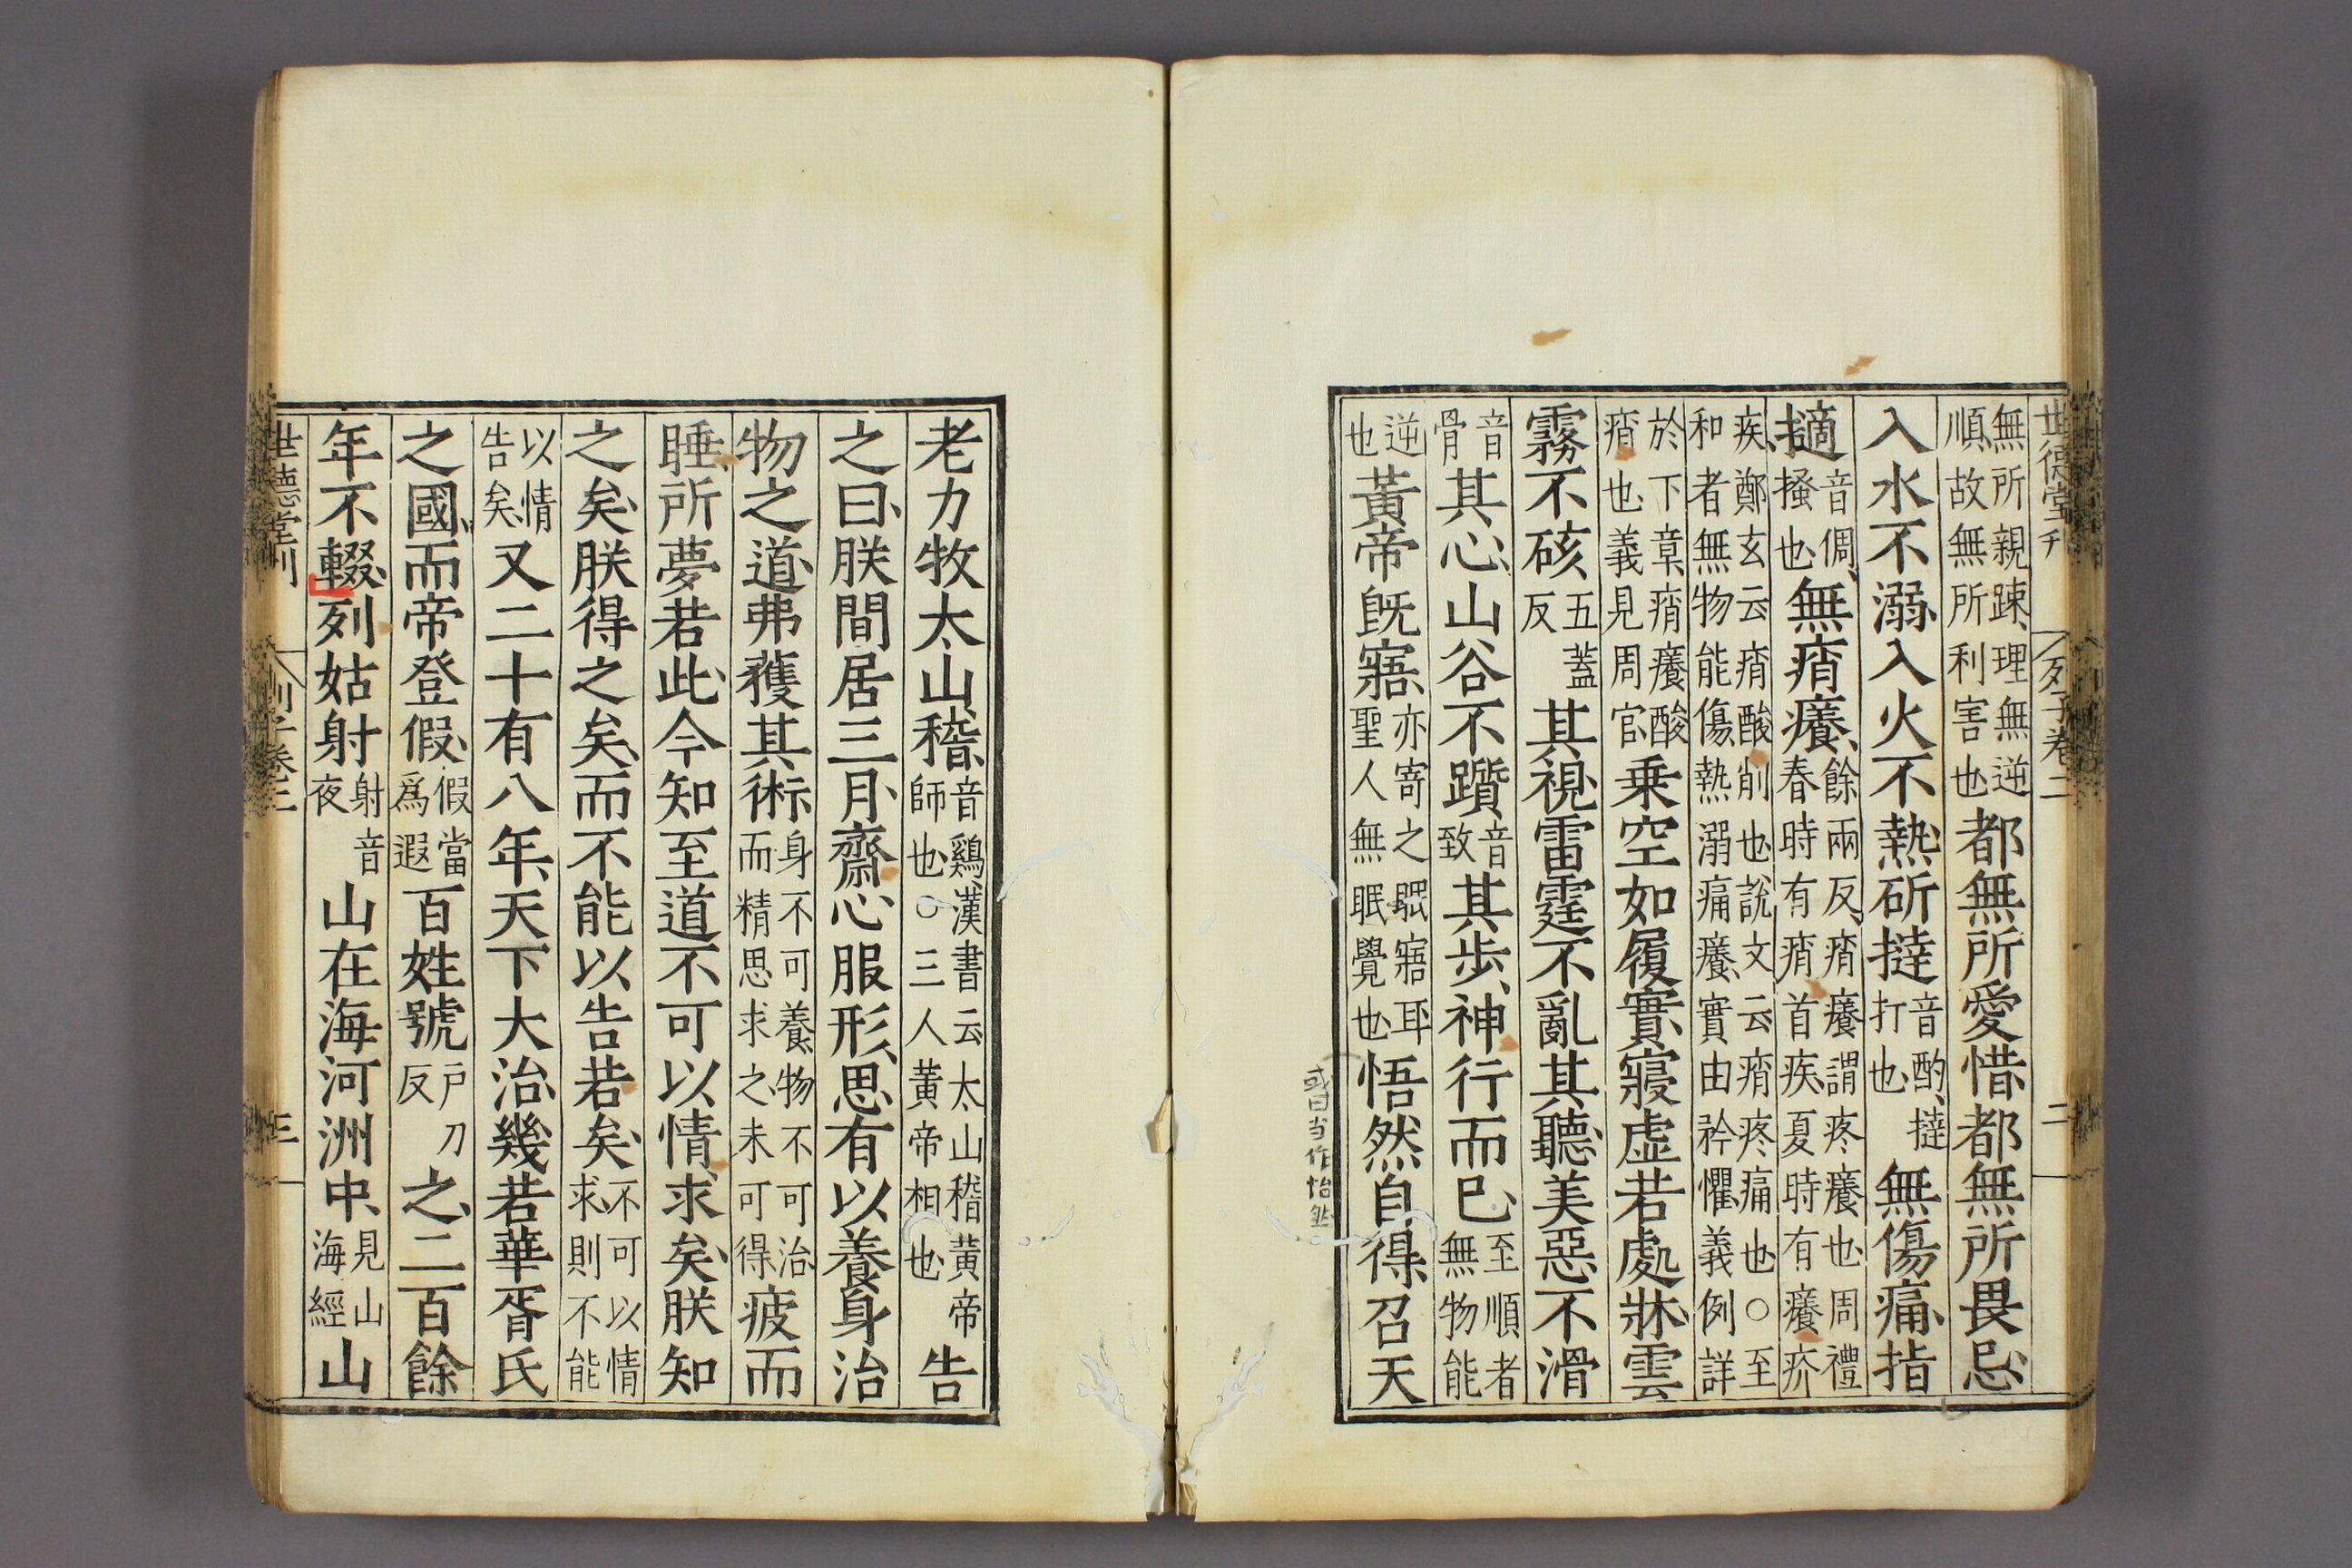 世德堂刊　列子卷二　二
無所親踈理無逆順故無所利害也都無所愛惜都無所畏忌
入水不溺入火不熱斫撻音酌撻打也無傷痛指
擿音倜搔也無痟癢餘兩反痟癢謂疼癢也周禮春時有痟首疾夏時有癢疥
疾鄭玄云痟酸削也說文云痟疼痛也○至和者無物能傷熱溺痛癢實由矜懼義例詳
於下章痟癢酸痟也義見周官乗空如履實寢虛若處牀雲
霧不硋五蓋反其視雷霆不亂其聽美惡不滑
音骨其心山谷不躓音致其步神行而已至順者無物能
逆也黃帝旣寤亦寄之眠寤耳聖人無眠覺也悟然自得召天
或曰当作怡然
老力牧太山稽音鷄漢書云太山稽黃帝師也○三人黃帝相也告
之曰朕閒居三月齋心服形思有以養身治
物之道弗獲其術身不可養物不可治而精思求之未可得疲而
睡所夢若此今知至道不可以情求矣朕知
之矣朕得之矣而不能以告若矣不可以情求則不能
以情告矣又二十有八年天下大治幾若華胥氏
之國而帝登假假當爲遐百姓號戶刀反之二百餘
年不輟列姑射射音夜山在海河洲中見山海經山
世德堂刊　列子卷二　三